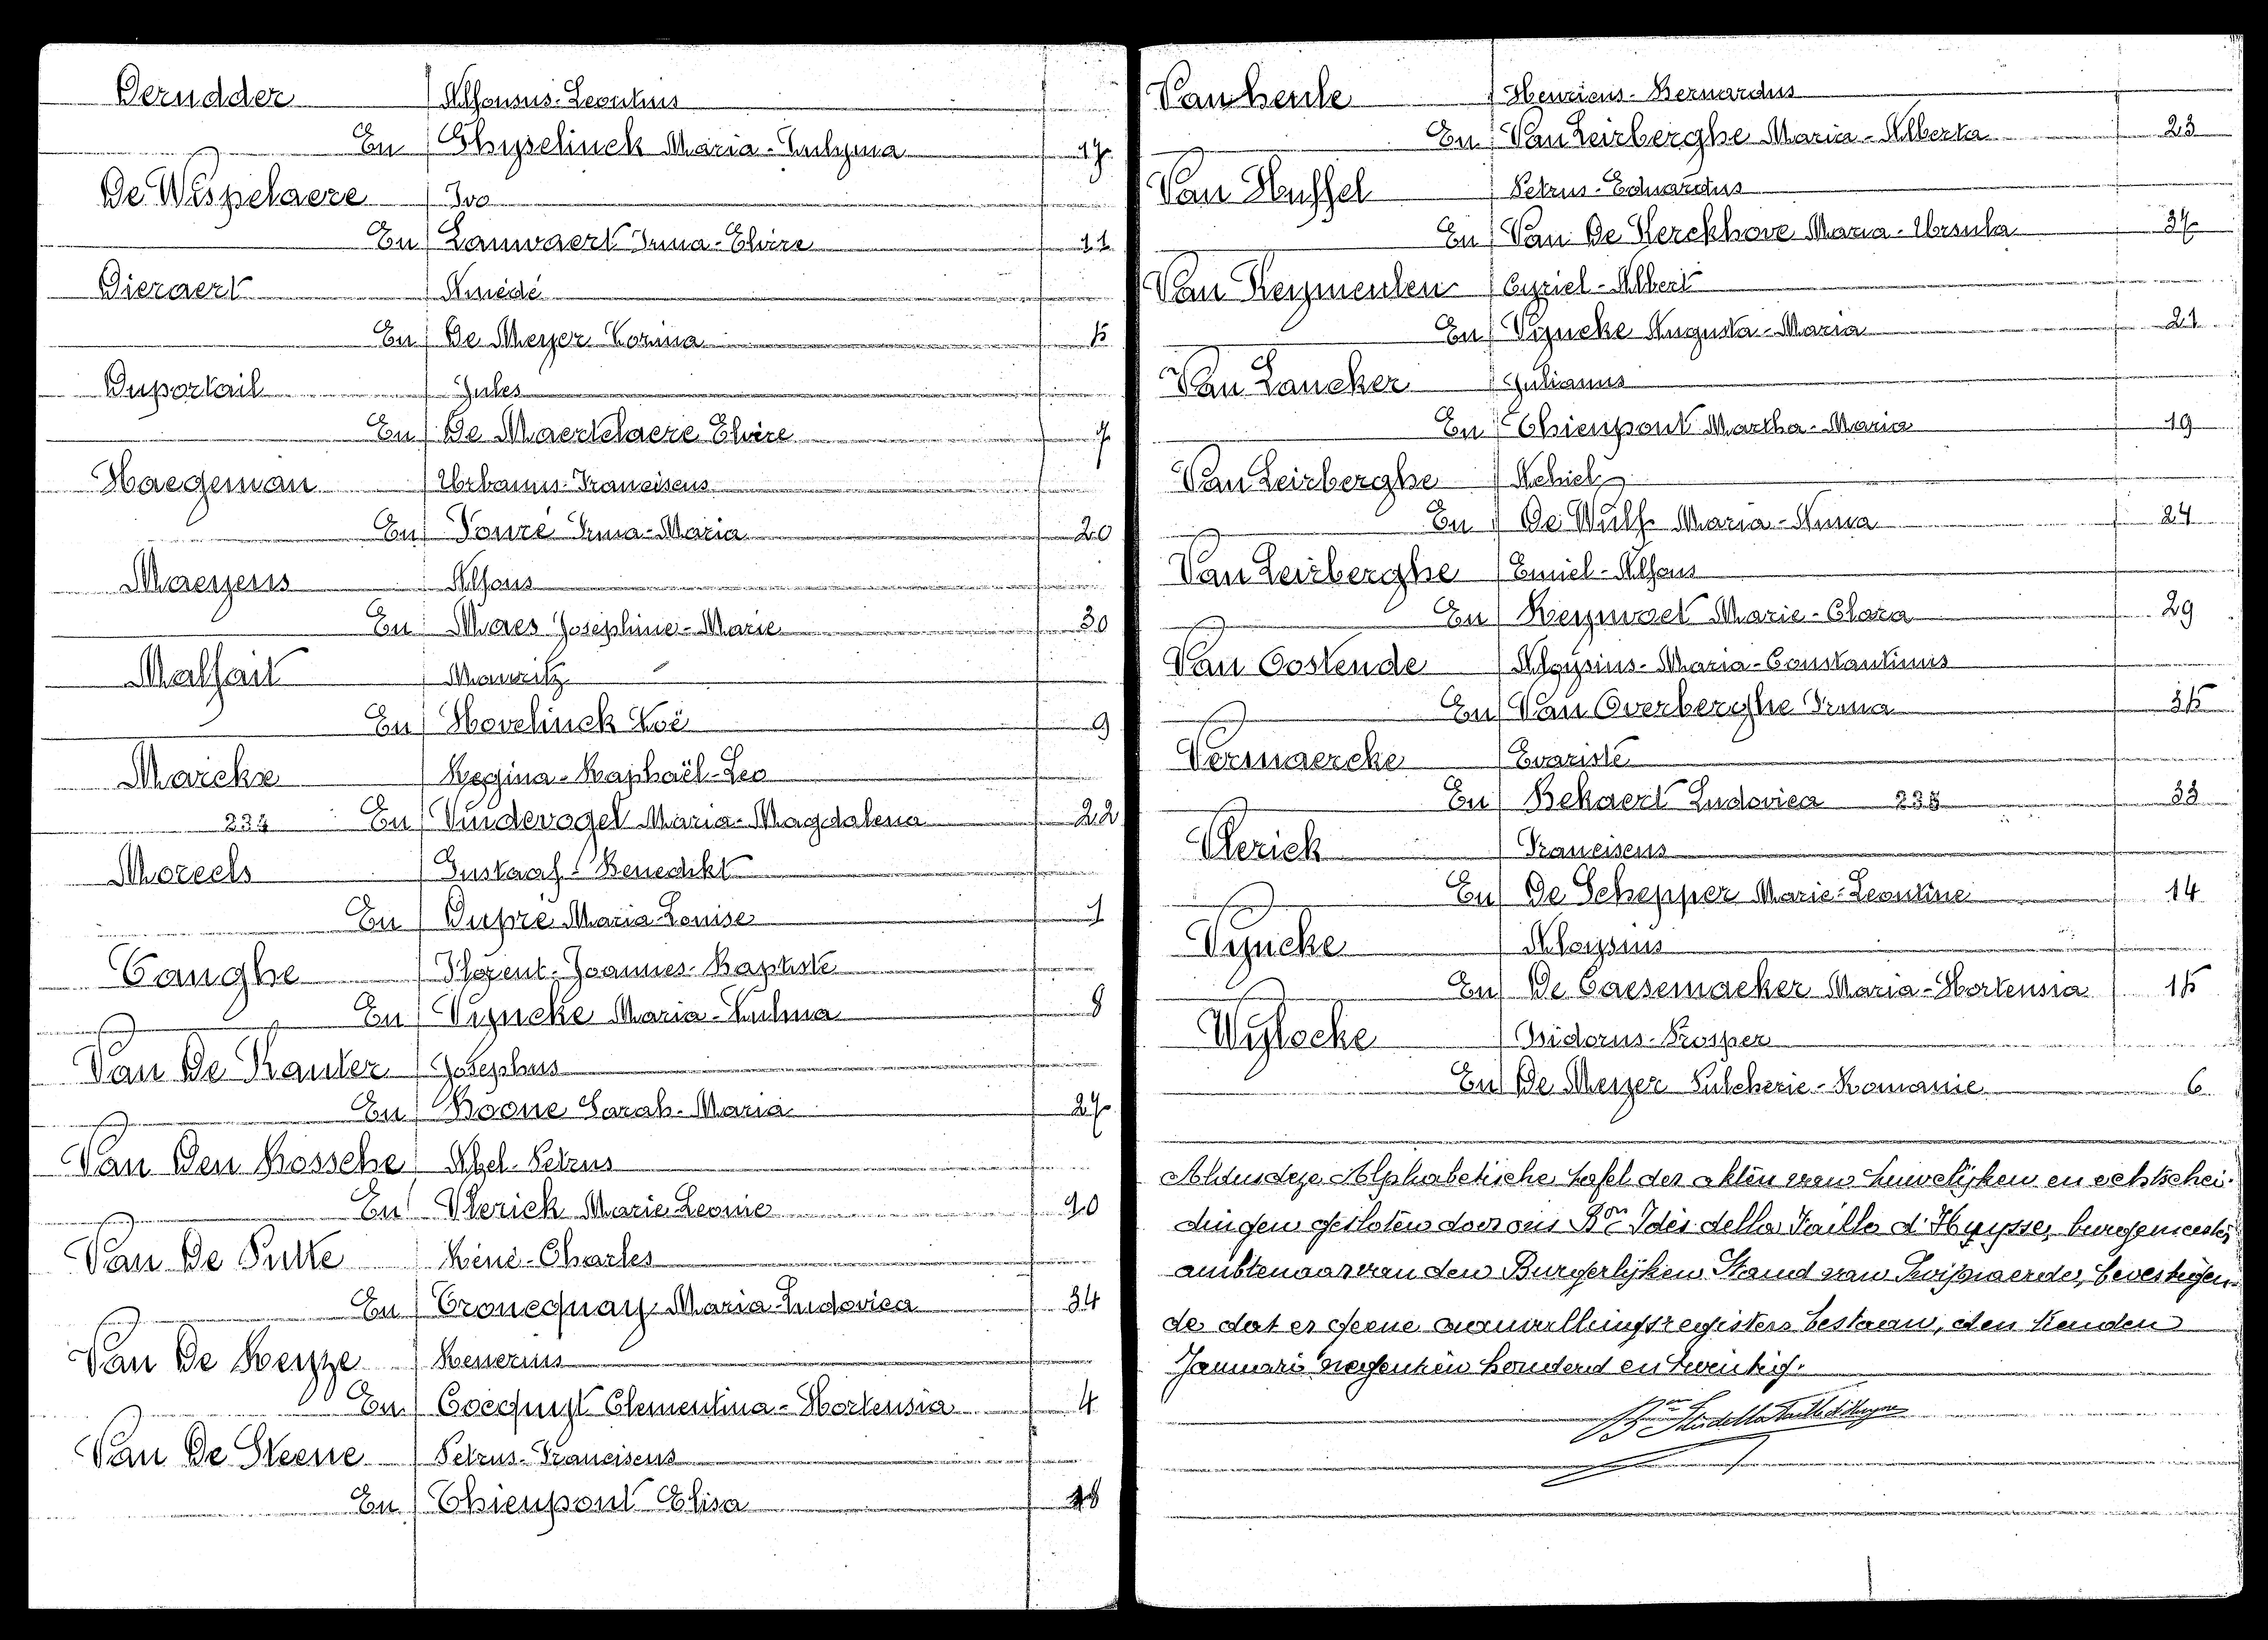 Derudder Alfonsus-Leontius
En Ghyselinck Maria-Eulyma 17
De Wispelaere Ivo
En Lauwaert Irma-Elvire 11
Dieraert Amédé
En De Meyer Corina 5
Duportail Jules
En De Maertelaere Elvire 7
Haegeman Urbanus-Franciscus
En Fouré Irma-Maria 20
Maeyens Alfons
En Maes Joséphine-Marie 30
Malfait Mauritz
En Hovelinck Zoë 9
Marckx Regina-Raphaël-Leo
234 En Vindevogel Maria-Magdalena 22
Moreels Gustaaf-Benedikt
En Dupré Maria-Louise 1
Canghe Florent-Joannes-Baptiste
En Vyncke Maria-Zulma 8
Van De Kauter Josephus
En Boone Sarah-Maria 27
Van Den Bossche Abel-Petrus
En Vlerick Marie Leonie 10
Van De Putte Réné-Charles
En Croucquay Maria-Ludovica 34
Van De Keyze Renerius
En Cocquyt Clementina-Hortensia 4
Van De Steene Petrus-Franciscus
En Thienpont Elisa 18
Vanheule Henricus-Bernardus
En Van Leirberghe Maria-Alberta 23
Van Huffel Petrus-Eduardus
En Van De Kerckhove Maria-Ursula 37
Van Keymeulen Cyriel-Albert
En Vyncke Augusta-Maria 21
Van Laucker Julianus
En Thienpont Martha-Maria 19
Van Leirberghe Achiel
En De Wulf Maria-Anna 24
Van Leirberghe Emiel-Alfons
En Reyvoet Marie-Clara 29
Van Oostende Aloysius-Maria-Constantinus
En Van Overberghe Irma 35
Vermaercke Evariste
En Bekaert Ludovica 235 33
Vlerick Franciscus
En De Schepper Marie-Leontine 14
Vyncke Aloysius
En De Caesemaeker Maria-Hortensia 15
Wylocke Isidorus-Prosper
En De Meyer Pulcherie-Romanie 6
Aldus deze Alphabetische tafel der akten van huwelijken en echtschei-
dingen gesloten door ons Bon Idés della Faille d'Huysse, burgemeester,
ambtenaar van den Burgerlijken Stand van Zwijnaerde, bevestigen-
de dat er geene aanvullingsregisters bestaan, den tienden
Januari negentien honderd en twintig.
Bon Idés della Faille d'Huysse